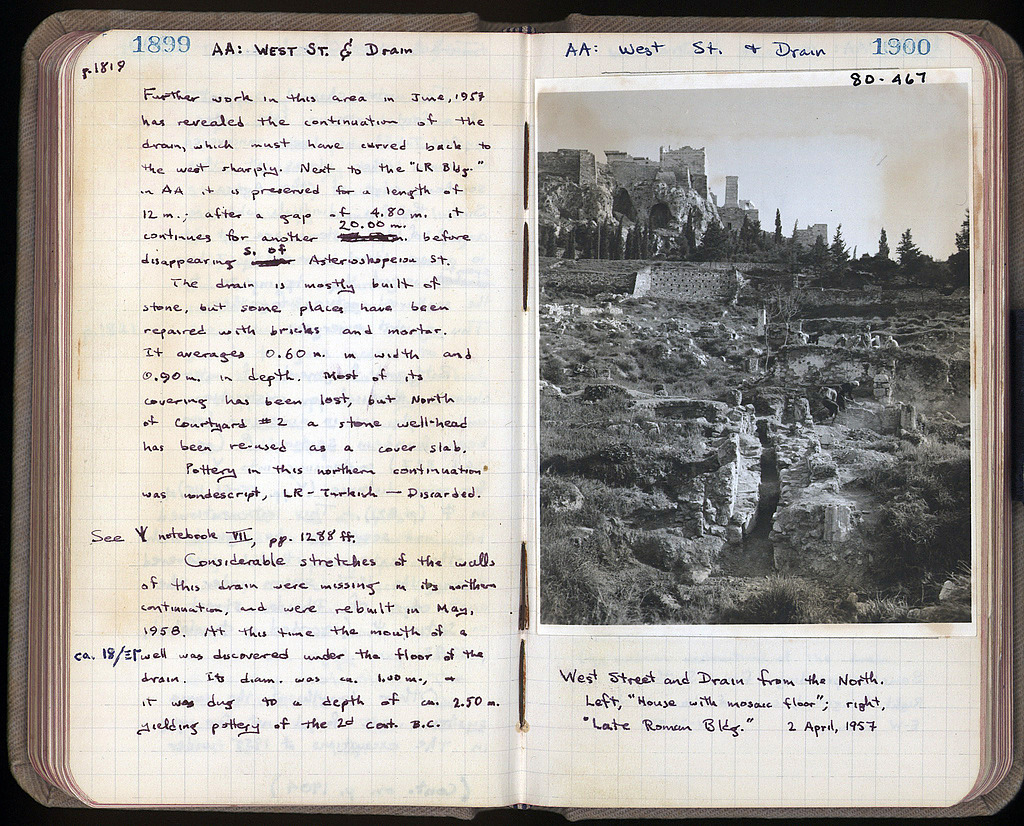 1899 AA: West St. & Drain
p.1818
Further work in this area in June, 1957
has revealed the continuation of the
drain, which must have curved back to
the west sharply. Next to the "LR Bldg."
in AA it is preserved for a length of
12 m.; after a gap of 4.80 m. it
20.00 m.
continues for another before
s. of
disappearing Asteroskopeiou St.
The drain is mostly built of
stone, but some places have been
repaired with bricks and mortar.
It averages 0.60 m. in width and
0.90 m. in depth. Most of its
covering has been lost, but North
of Courtyard #2 a stone well-head
has been re-used as a cover slab.
Pottery in this northern continuation
was nondescript, LR-Turkish — Discarded.
See Ψ notebook VII, pp. 1288 ff.
Considerable stretches of the walls
of this drain were missing in its northern
continuation, and were rebuilt in May,
1958. At this time the mouth of a
ca. 18/ΞΓ well was discovered under the floor of the
drain. Its diam. was ca. 1.00 m.,
it was dug to a depth of ca. 2.50 m.
yielding pottery of the 2d cent. B.C.
AA: West St. & Drain 1900
80-467
West Street and Drain from the North.
Left, "House with mosaic floor"; right,
"Late Roman Bldg." 2 April, 1957